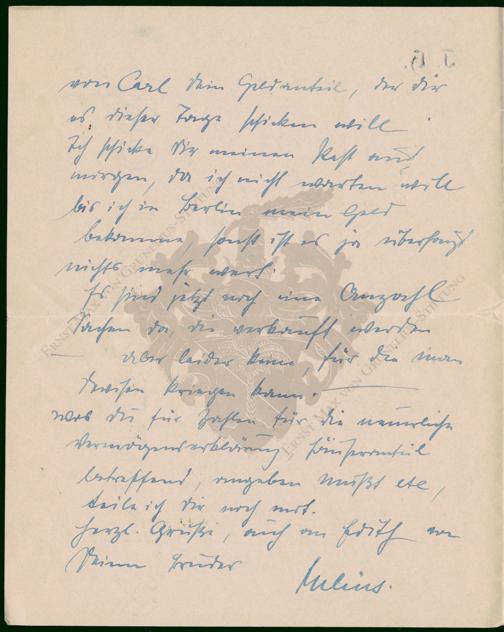 J. G.
von Carl Dein Geldanteil, der dir
es dieser Tage schicken will.
Ich schicke Dir meinen Rest
morgen, da ich nicht warten will
bis ich in Berlin mein Geld
bekomme, sonst ist es ja überhaupt
nichts mehr wert.
Es sind jetzt noch eine Anzahl
Sachen da, die verkauft werden
— aber leider keine, für die man
Devisen kriegen kann. —
Was du für Zahlen für die neuerliche
Vermögenserklärung, Häuseranteil
betreffend, angeben mußt etc,
teile ich dir noch mit.
Herzl. Grüße, auch an Edith von
Deinem Bruder
Julius.
ERNST MAX VON GRUNELIUS-STIFTUNG
ERNST MAX VON GRUNELIUS-STIFTUNG